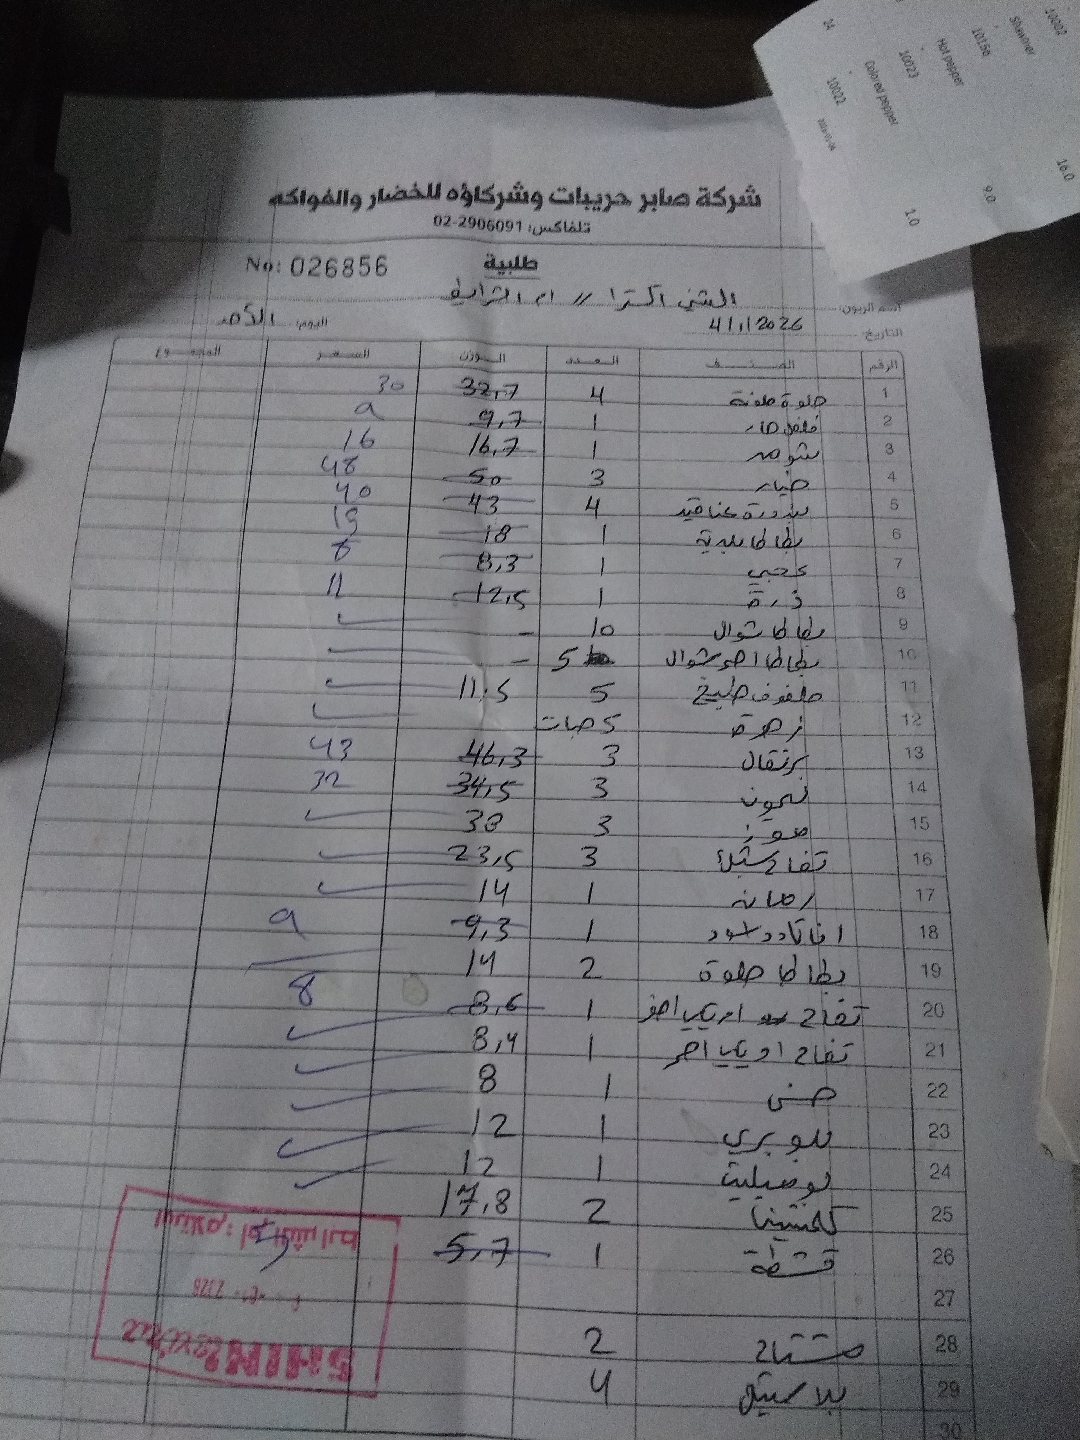 10002
Shawmer
10156
Hot pepper
10023
Colored pepper
10022
24
16.0
9.0
1.0
شركة صابر حريبات وشركاؤه للخضار والفواكه
تلفاكس: 02-2906091
طلبية
No: 026856
اسم الزبون: الشني اكسترا // ام الشرايط
التاريخ: 4/1/2026 اليوم: الأحد
الرقم الصنف العدد الوزن السعر المجموع
1 حلوة ملونة 4 32,7 30
2 فلفل حار 1 9,7 9
3 شومر 1 16,7 16
4 خيار 3 50 48
5 بندورة عناقيد 4 43 40
6 بطاطا بلدية 1 18
7 عجمي 1 8,3 8
8 ذرة 1 12,5 11
9 بطاطا شوال 10 -
10 بطاطا احمر شوال 5 -
11 ملفوف طبيخ 5 11,5
12 زهرة 5 حبات
13 برتقال 3 46,3 43
14 ليمون 3 34,5 32
15 موز 3 38
16 تفاح سكري 3 23,5
17 رمان 1 14
18 افوكادو اسود 1 9,3 9
19 بطاطا حلوة 2 14
20 تفاح امريكي اخضر 1 8,6 8
21 تفاح امريكي احمر 1 8,4
22 1 8
23 بلو بري 1 12
24 بوميلية 1 12
25 كلمنتينا 2 17,8
26 قشطة 1 5,7 5
27
28 مشتاح 2
29 بلاستيك 4
30
استلام: ام الشرايط
SHINI extra